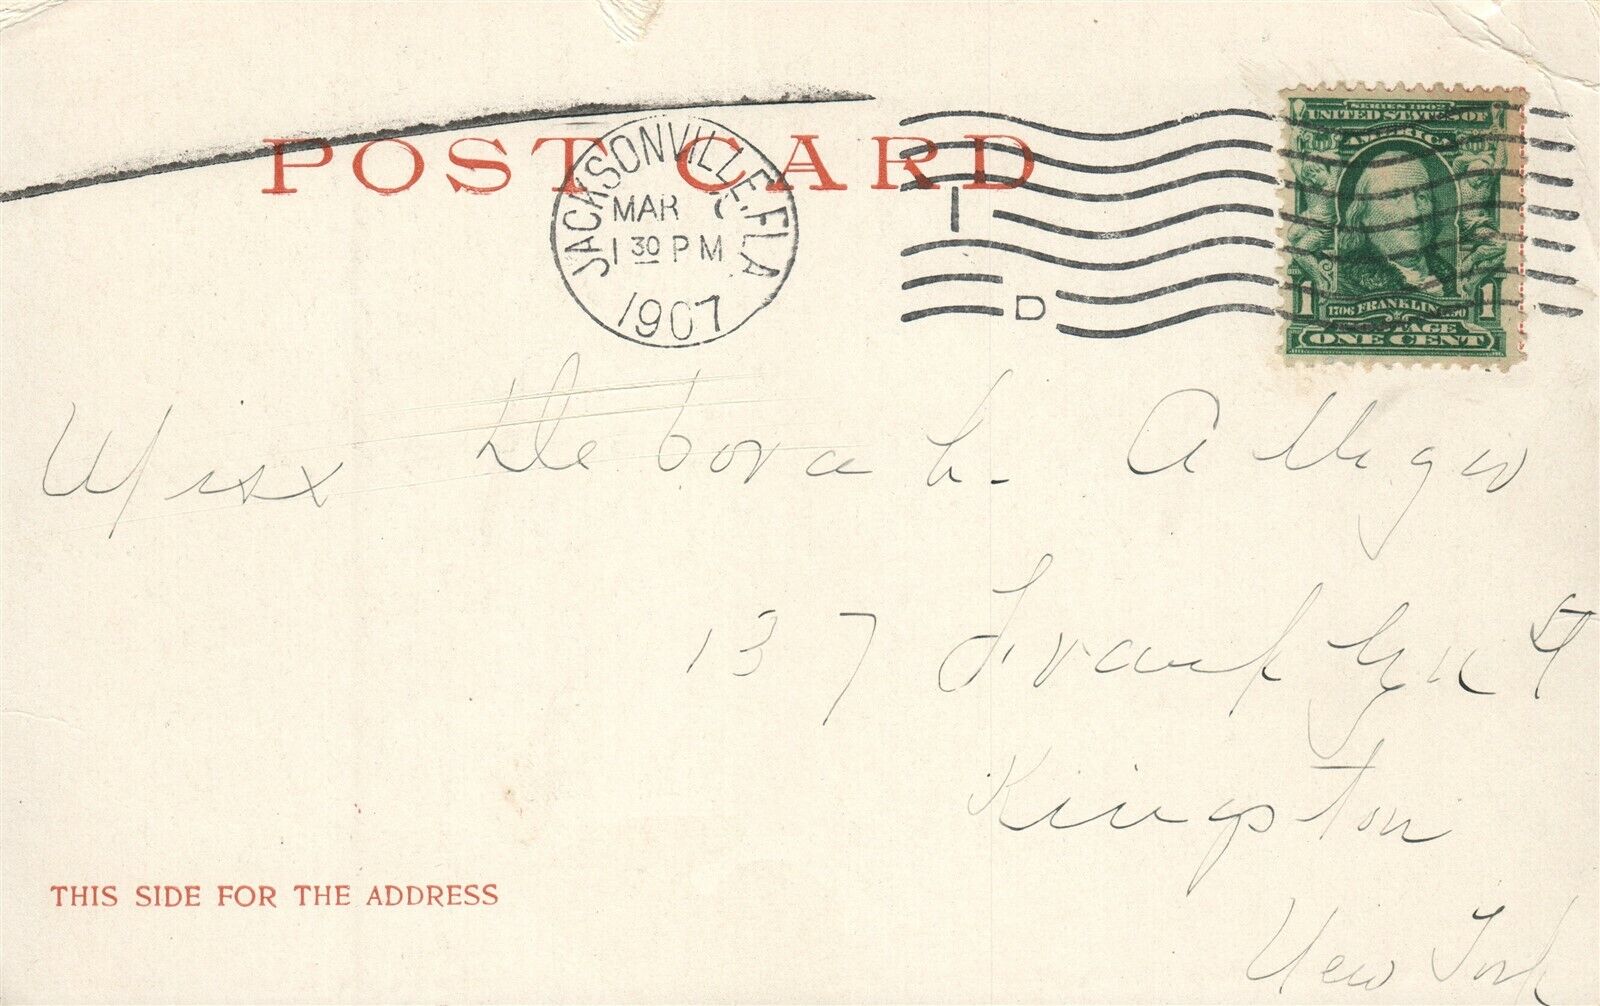 POST CARD
JACKSONVILLE, FLA.
MAR
1 30 PM
1907
I
D
SERIES 1902
UNITED STATES OF
AMERICA
1706 FRANKLIN 1790
POSTAGE
1 1
ONE CENT
Miss Deborah
137 St
Kingston
New York
THIS SIDE FOR THE ADDRESS